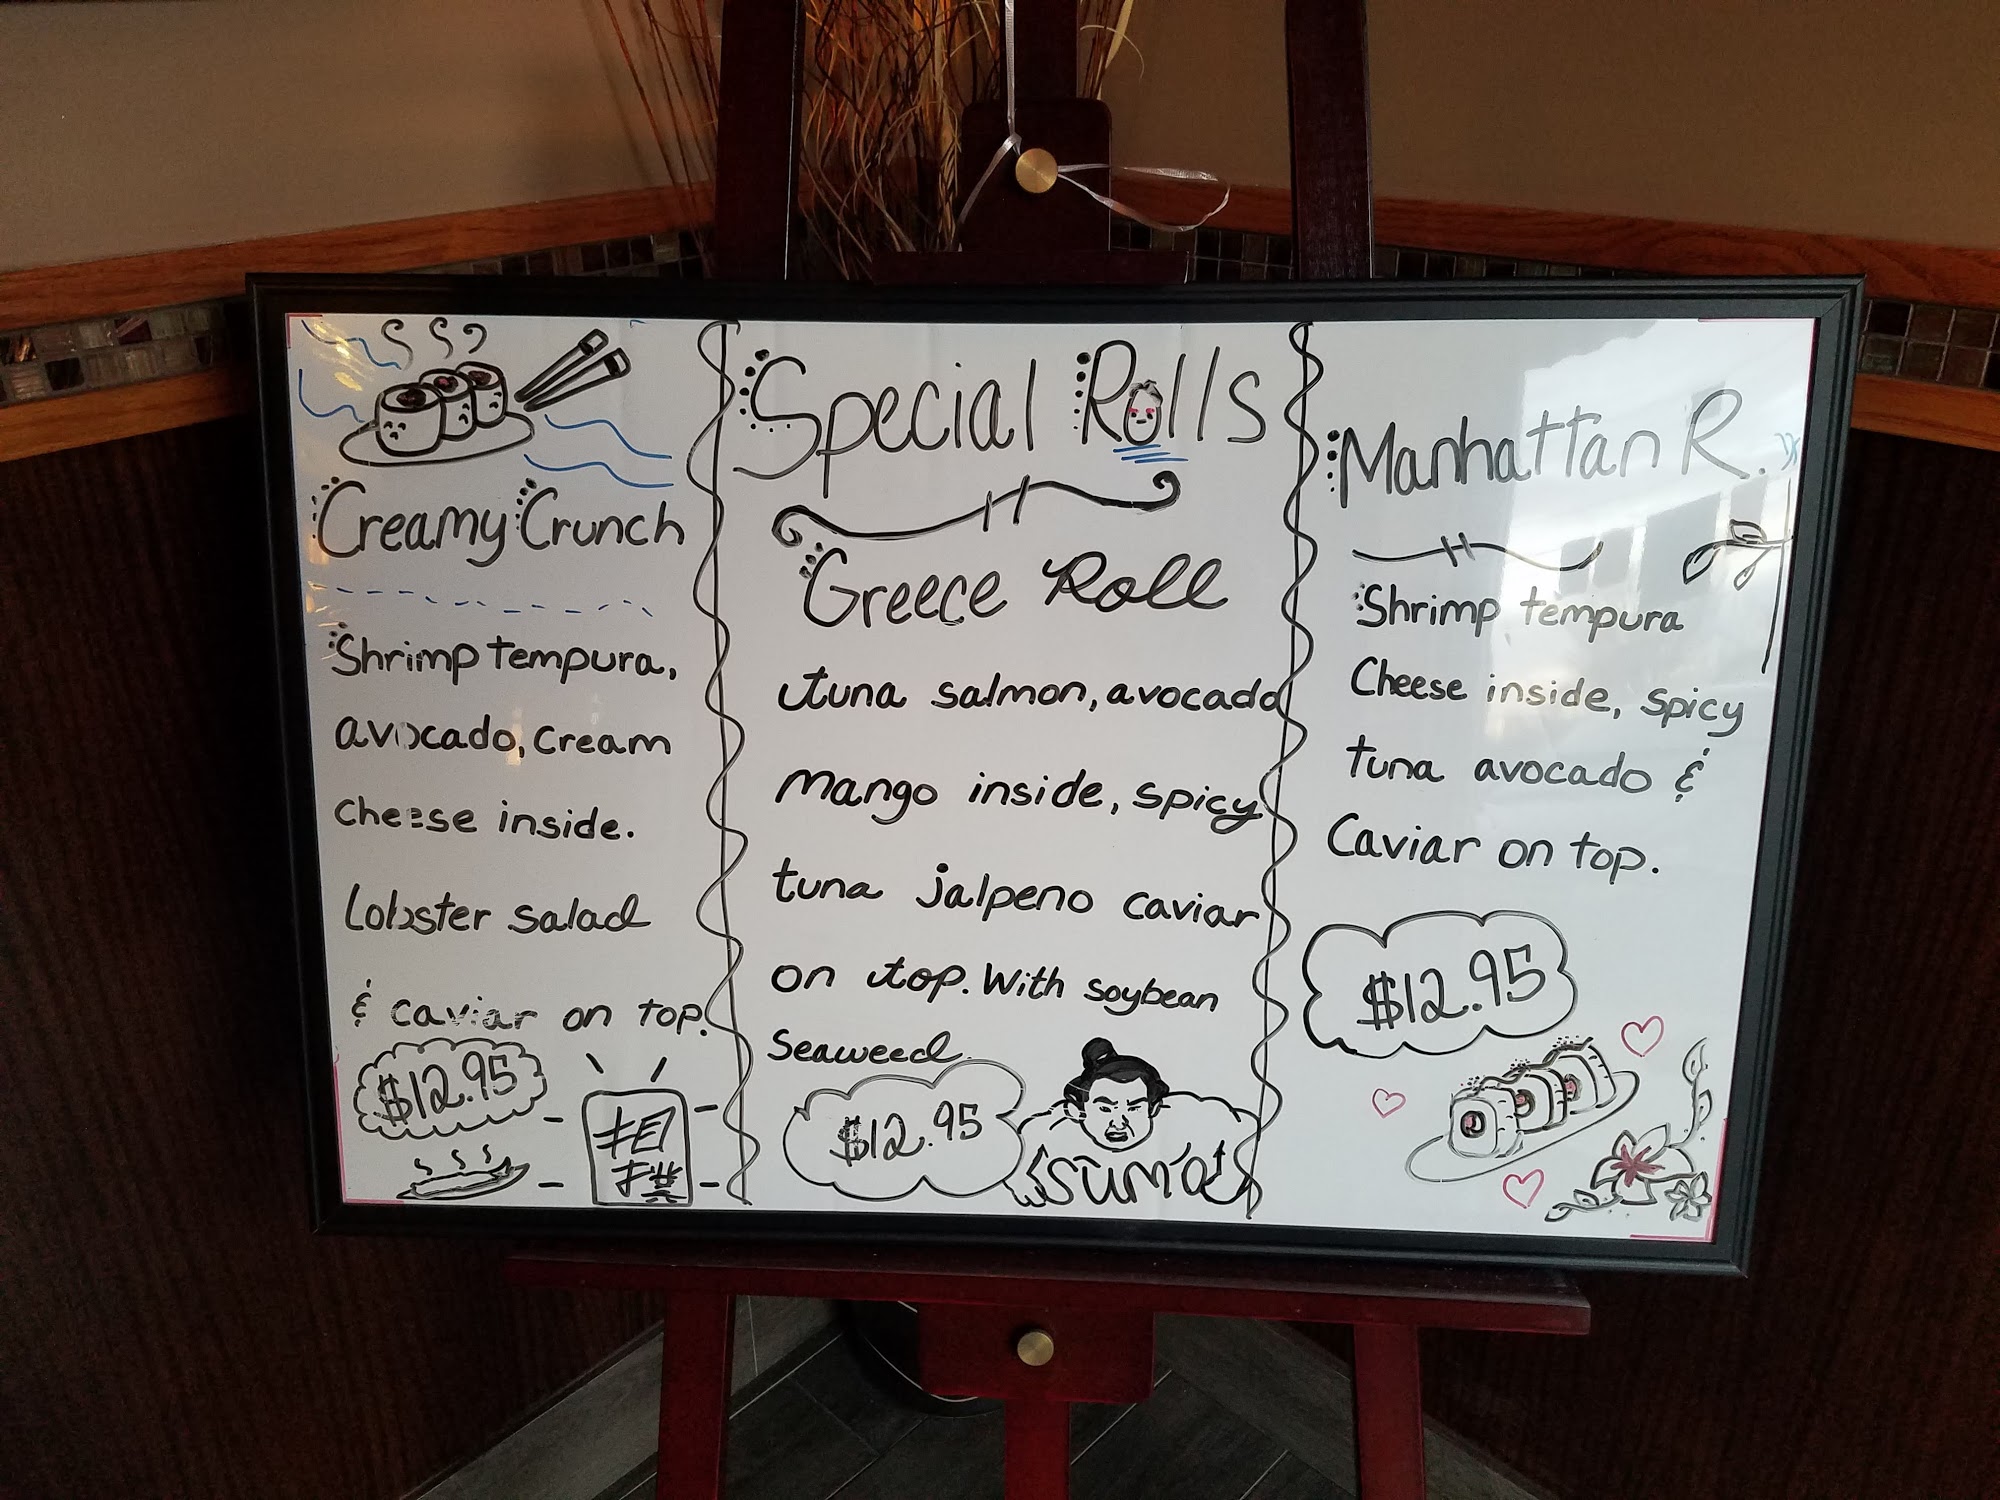 Special Rolls
Creamy Crunch
Shrimp tempura,
avocado, cream
cheese inside.
Lobster salad
& caviar on top.
$12.95
Greece Roll
tuna salmon, avocado
mango inside, spicy
tuna jalpeno caviar
on top. With soybean
seaweed.
$12.95
SUMO
Manhattan R.
Shrimp tempura
Cheese inside, spicy
tuna avocado &
Caviar on top.
$12.95